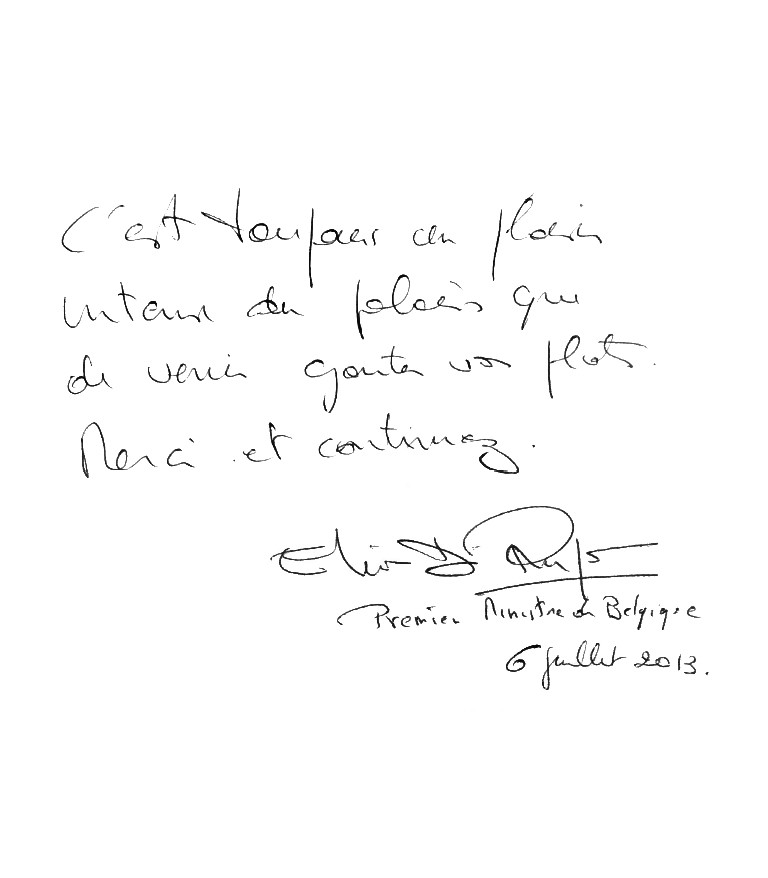 C'est toujours un plaisir
intense du palais que
de venir goûter vos plats.
Merci et continuez.
Elio Di Rupo
Premier Ministre de Belgique
6 juillet 2013.